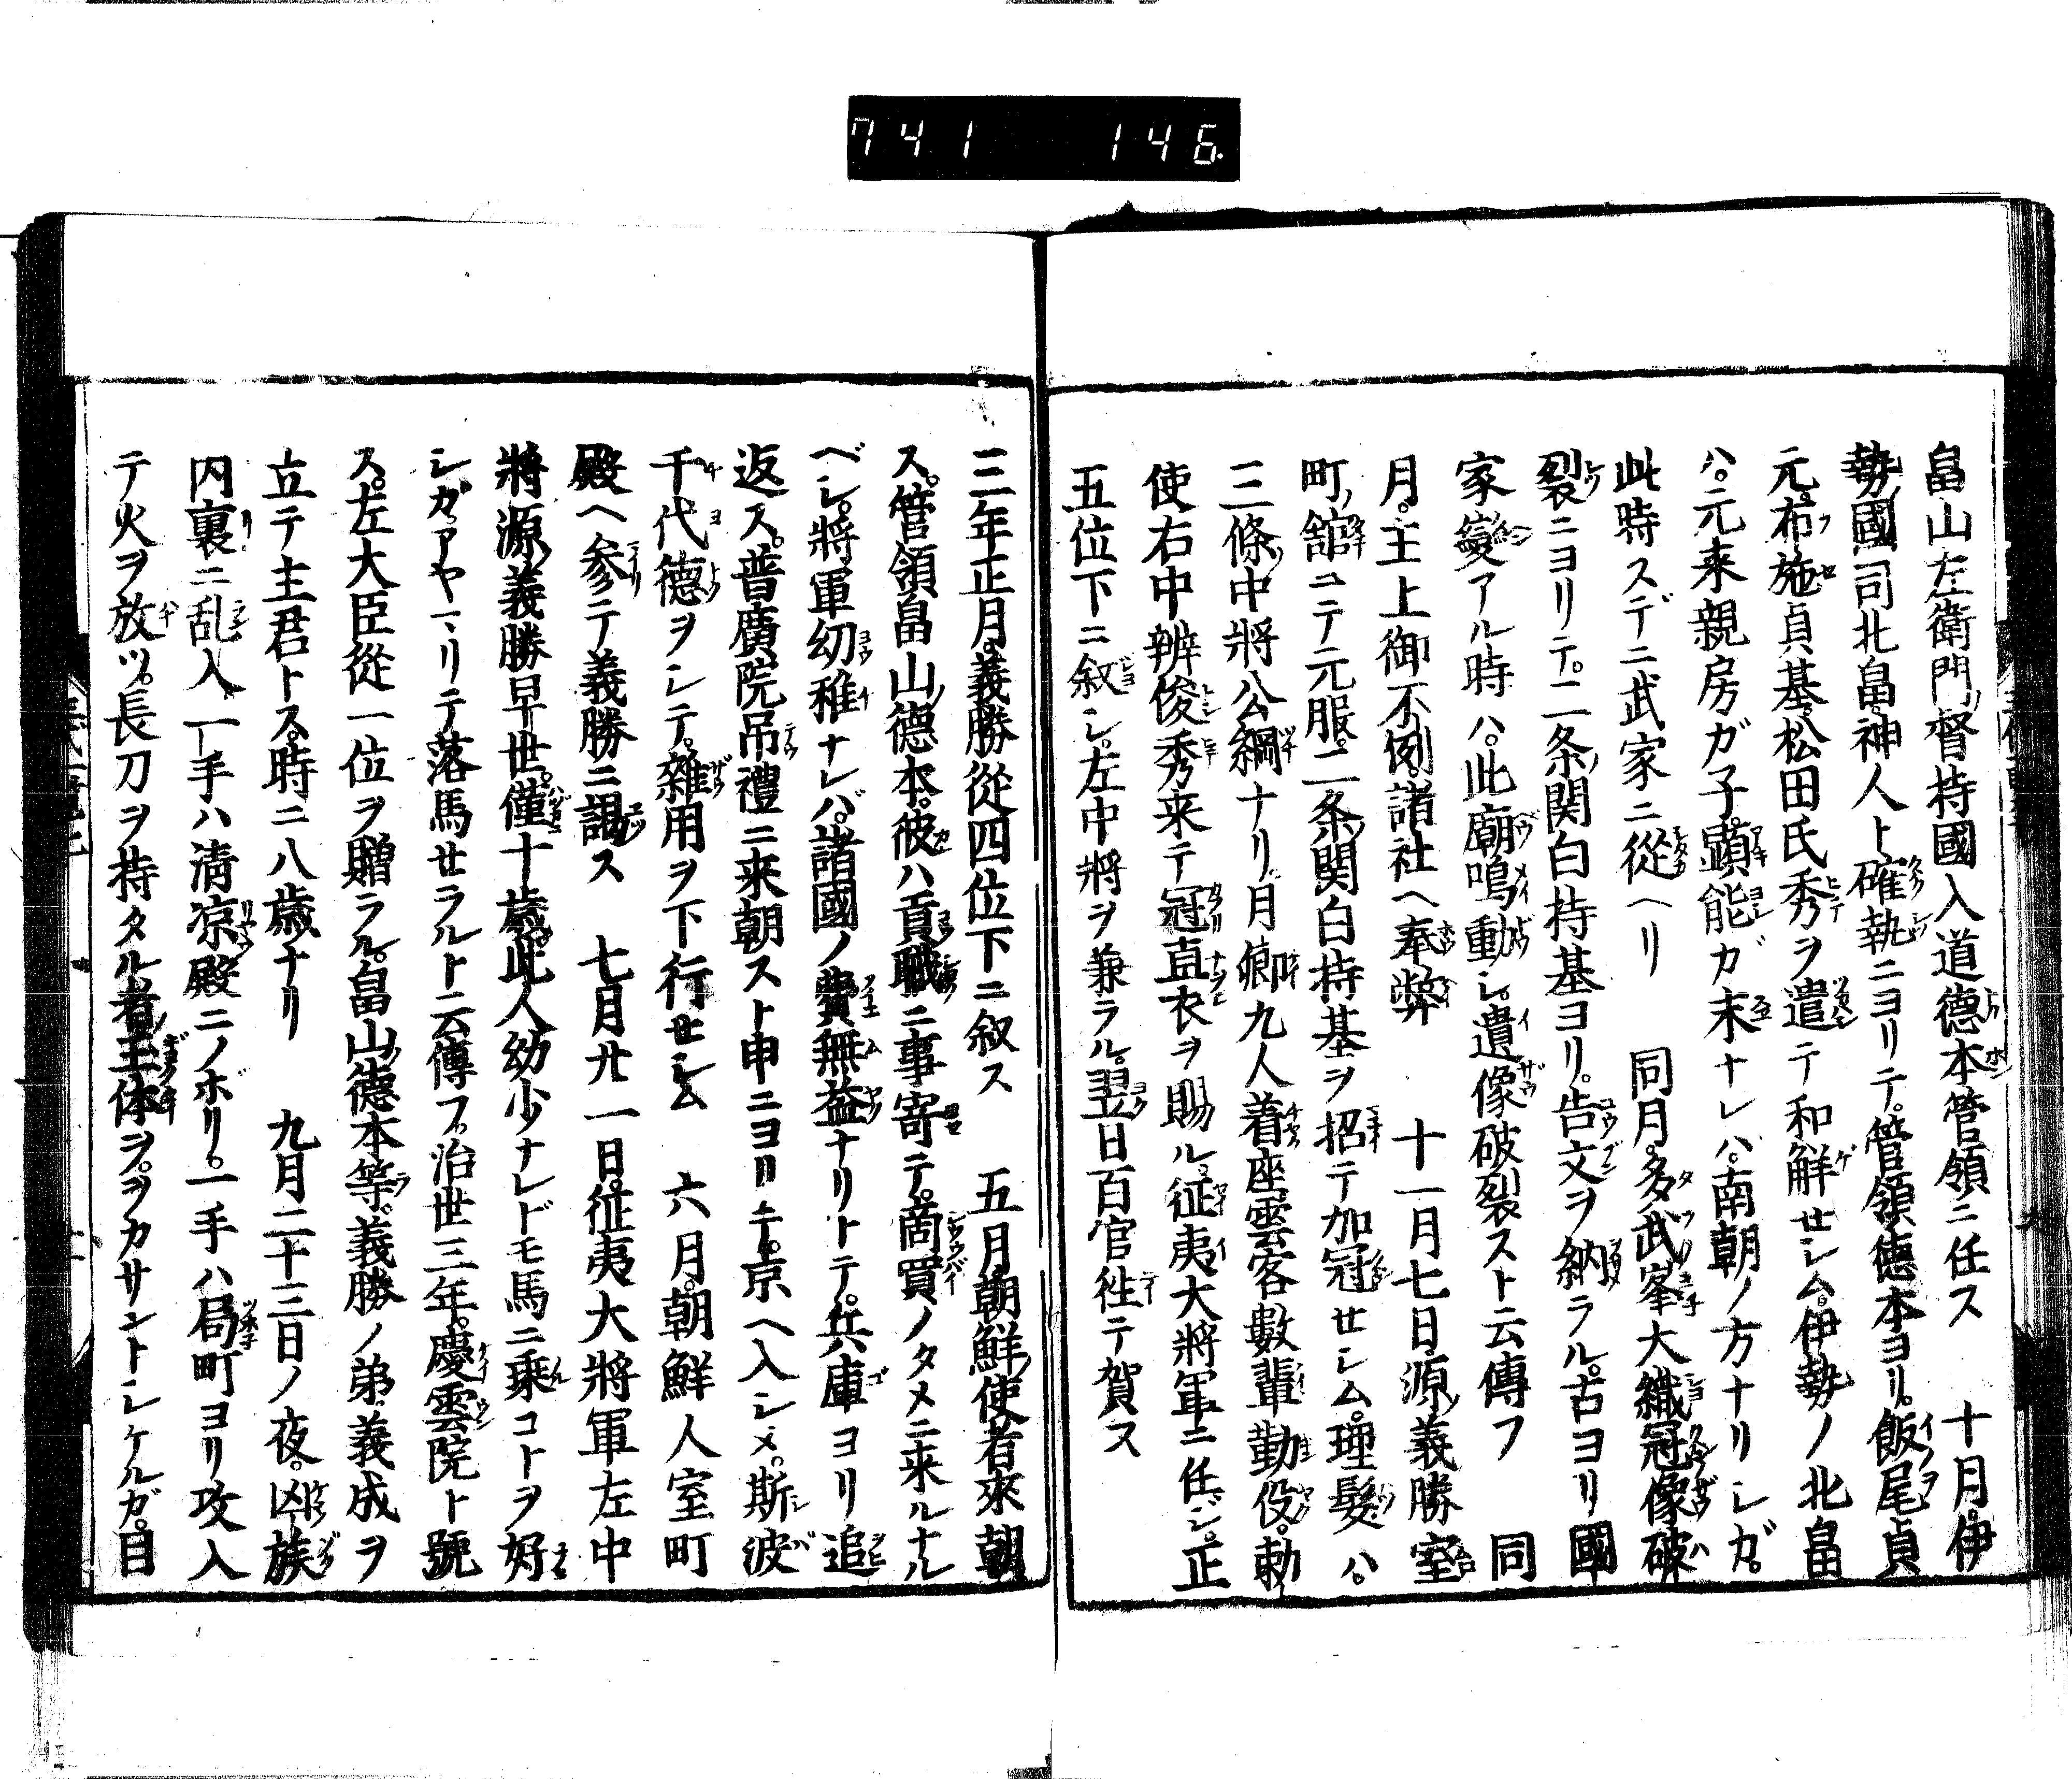 741 146
畠山左衛門ノ督持國入道德本管領ニ任ス 十月。伊
勢ノ國司北畠。神人ト確執ニヨリテ。管領德本ヨリ。飯尾貞
元。布施貞基。松田氏秀ヲ遣テ和解セシム。伊勢ノ北畠
ハ。元来親房ガ子。顕能ガ末ナレハ。南朝ノ方ナリシガ。
此時スデニ武家ニ從ヘリ 同月。多武峯大織冠像破
裂ニヨリテ。二条ノ関白持基ヨリ。告文ヲ納ラル。古ヨリ國
家變アル時ハ。此廟鳴動シ。遺像破裂スト云傳フ 同
月。主上御不例。諸社ヘ奉弊 十一月七日。源ノ義勝室
町ノ舘ニテ元服。二条ノ関白持基ヲ招テ加冠セシム。理髮ハ。
三條ノ中將公綱ナリ。月卿九人着座雲客數輩勤役。勅
使右中辨俊秀来テ冠直衣ヲ賜ル。征夷大將軍ニ任ジ。正
五位下ニ叙シ。左中將ヲ兼ラル。翌日百官徃テ賀ス
三年正月。義勝從四位下ニ叙ス 五月。朝鮮ノ使者來朝
ス。管領畠山ノ德本。彼ハ貢職ニ事寄テ。商買ノタメニ来ルナル
ベシ。將軍幼稚ナレバ。諸國ノ費無益ナリトテ。兵庫ヨリ追
返ス。普廣院吊禮ニ来朝スト申ニヨリテ。京ヘ入シメ。斯波
千代德ヲシテ。雜用ヲ下行セシム 六月。朝鮮人室町
殿ヘ参テ義勝ニ謁ス 七月廿一日。征夷大將軍左中
將源ノ義勝早世。僅十歳。此人幼少ナレドモ馬ニ乗コトヲ好
シガ。アヤマリテ落馬セラルト云傳フ。治世三年。慶雲院ト號
ス。左大臣從一位ヲ贈ラル。畠山ノ德本等。義勝ノ弟義成ヲ
立テ主君トス。時ニ八歳ナリ 九月二十三日ノ夜。凶族
内裏ニ乱入。一手ハ清凉殿ニノボリ。一手ハ局町ヨリ攻入
テ火ヲ放ツ。長刀ヲ持タル者玉体ヲ。ヲカサントシケルガ。目